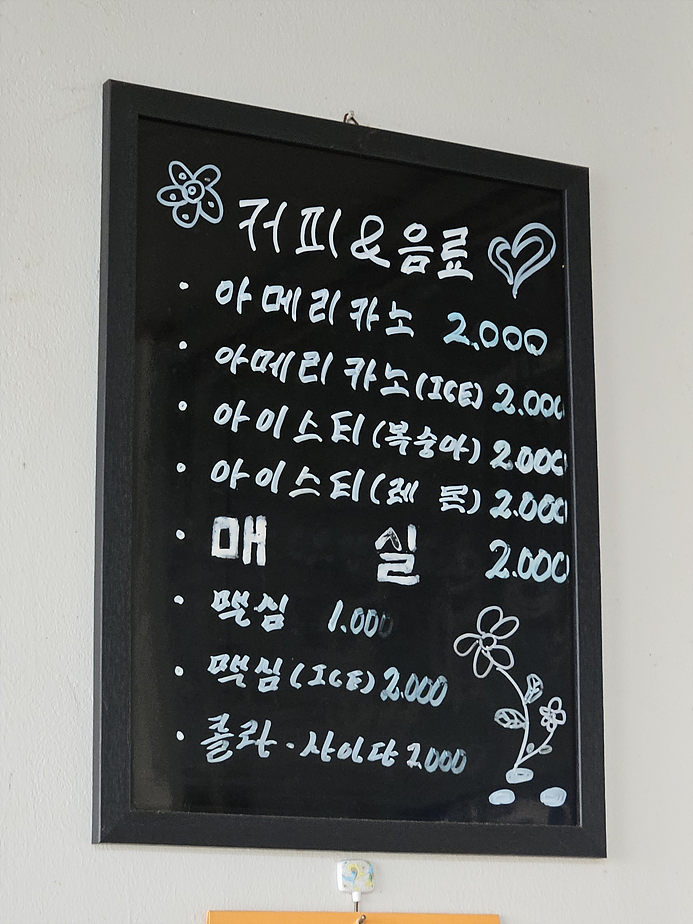 커피&음료
· 아메리카노 2,000
· 아메리카노(ICE) 2.000
· 아이스티(복숭아) 2.000
· 아이스티(레몬) 2.000
· 매 실 2.000
· 맥심 1.000
· 맥심(ICE) 2.000
· 콜라·사이다 2.000